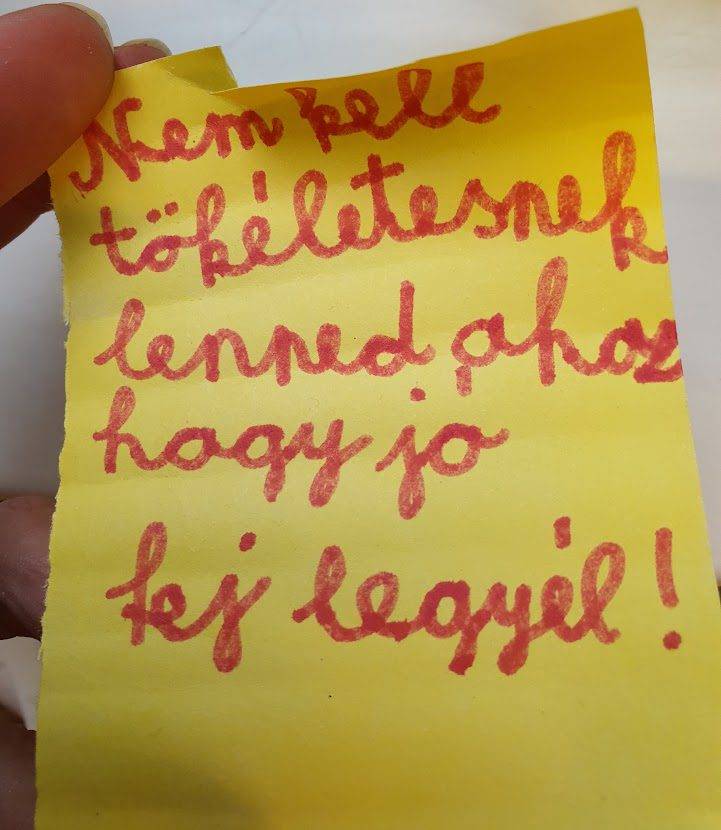 Nem kell
tökéletesnek
lenned ahoz
hogy jó
fej legyél!